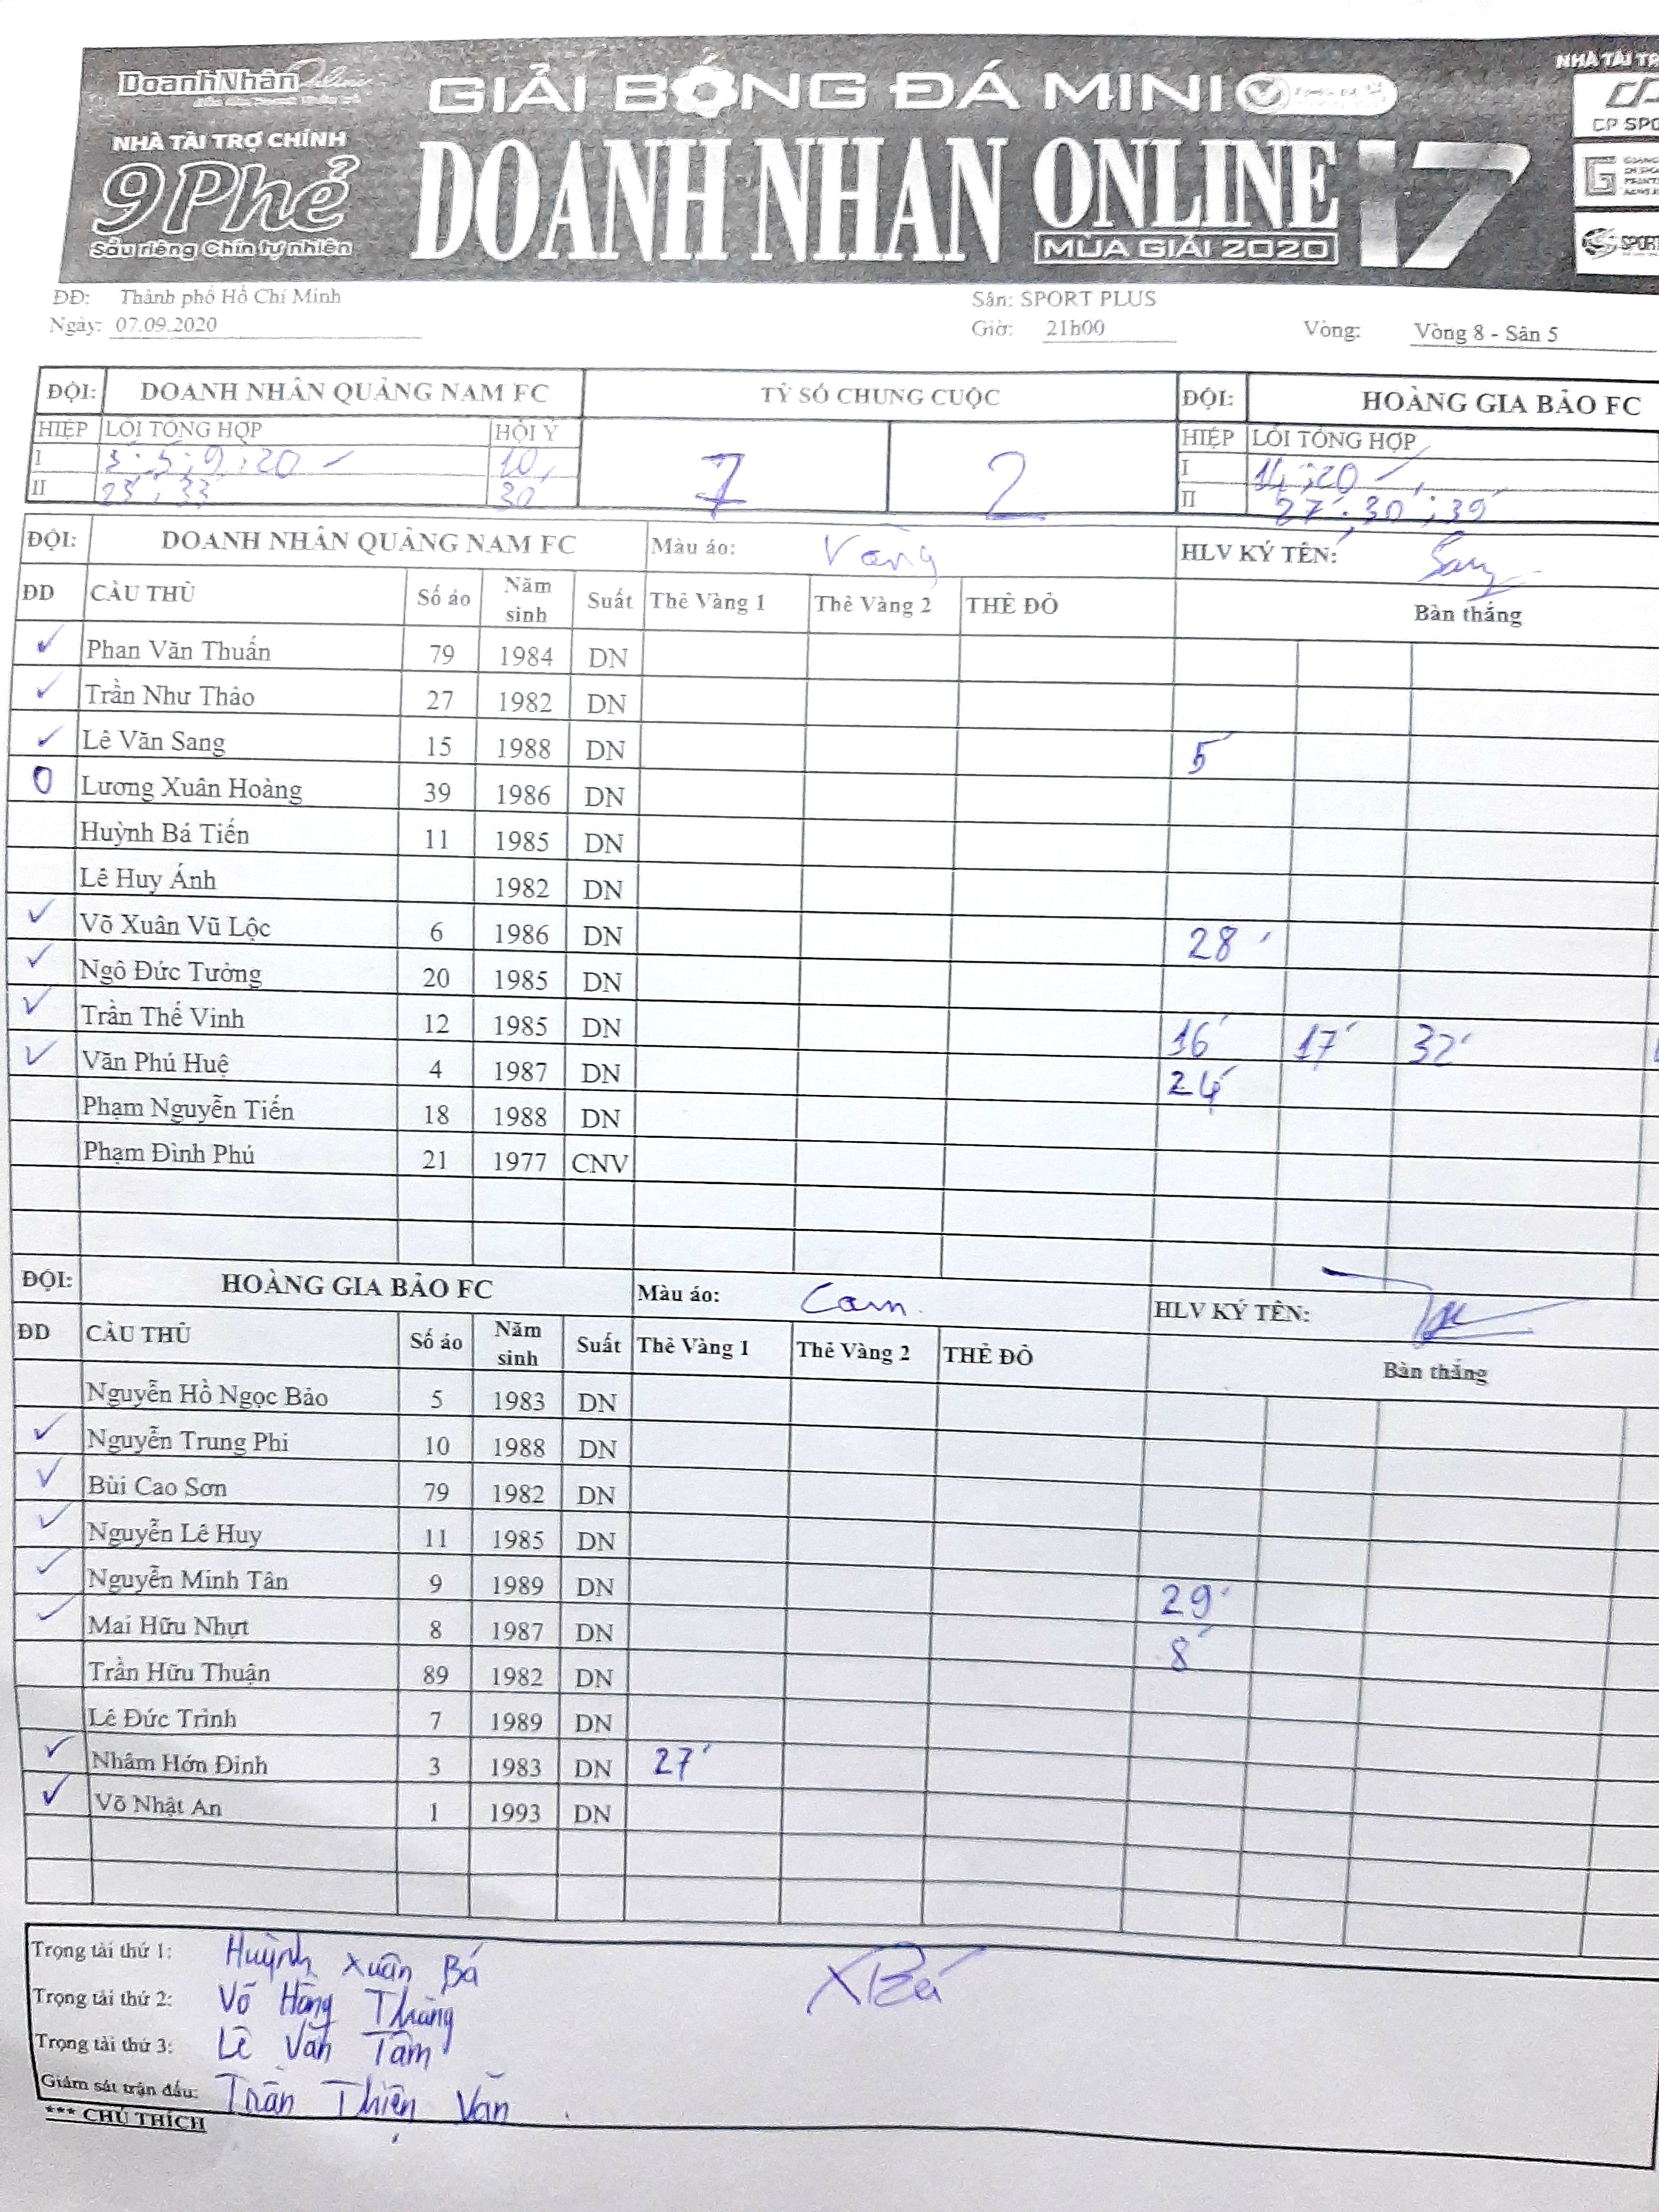 DoanhNhân Online
GIẢI BÓNG ĐÁ MINI
NHÀ TÀI TRỢ
NHÀ TÀI TRỢ CHÍNH
9Phẻ
Sầu riêng Chín tự nhiên
DOANH NHAN ONLINE 17
MÙA GIẢI 2020
CP SPO
SPORT
ĐĐ: Thành phố Hồ Chí Minh Sân: SPORT PLUS
Ngày: 07.09.2020 Giờ: 21h00 Vòng: Vòng 8 - Sân 5
ĐỘI: DOANH NHÂN QUẢNG NAM FC TỶ SỐ CHUNG CUỘC ĐỘI: HOÀNG GIA BẢO FC
HIỆP LỖI TỔNG HỢP HỘI Ý 7 2 HIỆP LỖI TỔNG HỢP
I 3'; 5'; 9'; 20 10' I 14'; 20
II 25'; 33' 30' II 27'; 30'; 39'
ĐỘI: DOANH NHÂN QUẢNG NAM FC Màu áo: Vàng HLV KÝ TÊN: Sang
ĐD CẦU THỦ Số áo Năm sinh Suất Thẻ Vàng 1 Thẻ Vàng 2 THẺ ĐỎ Bàn thắng
✓ Phan Văn Thuấn 79 1984 DN
✓ Trần Như Thảo 27 1982 DN
✓ Lê Văn Sang 15 1988 DN 5'
0 Lương Xuân Hoàng 39 1986 DN
Huỳnh Bá Tiến 11 1985 DN
Lê Huy Ánh 1982 DN
✓ Võ Xuân Vũ Lộc 6 1986 DN 28'
✓ Ngô Đức Tưởng 20 1985 DN
✓ Trần Thế Vinh 12 1985 DN 16' 17' 32'
✓ Văn Phú Huệ 4 1987 DN 24'
Phạm Nguyễn Tiến 18 1988 DN
Phạm Đình Phú 21 1977 CNV
ĐỘI: HOÀNG GIA BẢO FC Màu áo: Cam HLV KÝ TÊN:
ĐD CẦU THỦ Số áo Năm sinh Suất Thẻ Vàng 1 Thẻ Vàng 2 THẺ ĐỎ Bàn thắng
Nguyễn Hồ Ngọc Bảo 5 1983 DN
✓ Nguyễn Trung Phi 10 1988 DN
✓ Bùi Cao Sơn 79 1982 DN
✓ Nguyễn Lê Huy 11 1985 DN
✓ Nguyễn Minh Tân 9 1989 DN 29'
✓ Mai Hữu Nhựt 8 1987 DN 8'
Trần Hữu Thuận 89 1982 DN
Lê Đức Trình 7 1989 DN
✓ Nhâm Hớn Đinh 3 1983 DN 27'
✓ Võ Nhật An 1 1993 DN
Trọng tài thứ 1: Huỳnh Xuân Bá XBá
Trọng tài thứ 2: Võ Hồng Thắng
Trọng tài thứ 3: Lê Văn Tâm
Giám sát trận đấu: Trần Thiện Văn
*** CHÚ THÍCH